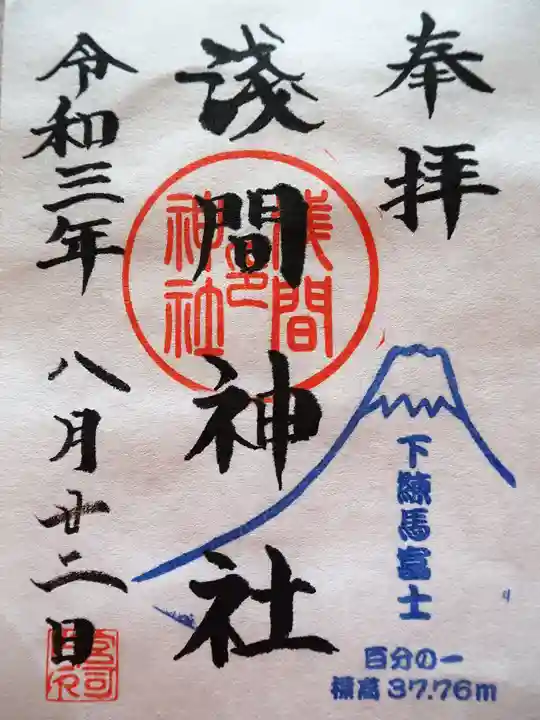 奉拝
浅間神社
浅間
神社
令和三年 八月廿二日
下練馬富士
百分の一
標高37.76m